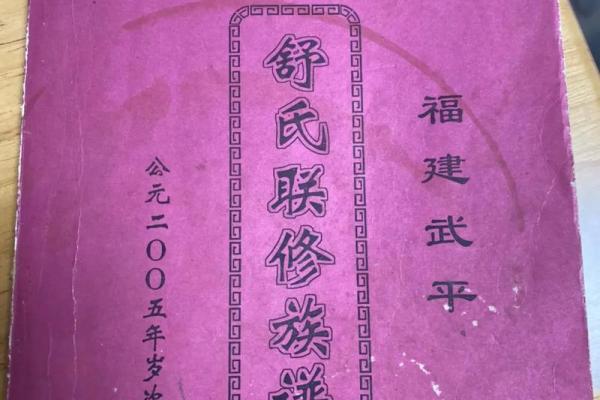 福建武平
舒氏联修族谱
公元二〇〇五年岁次